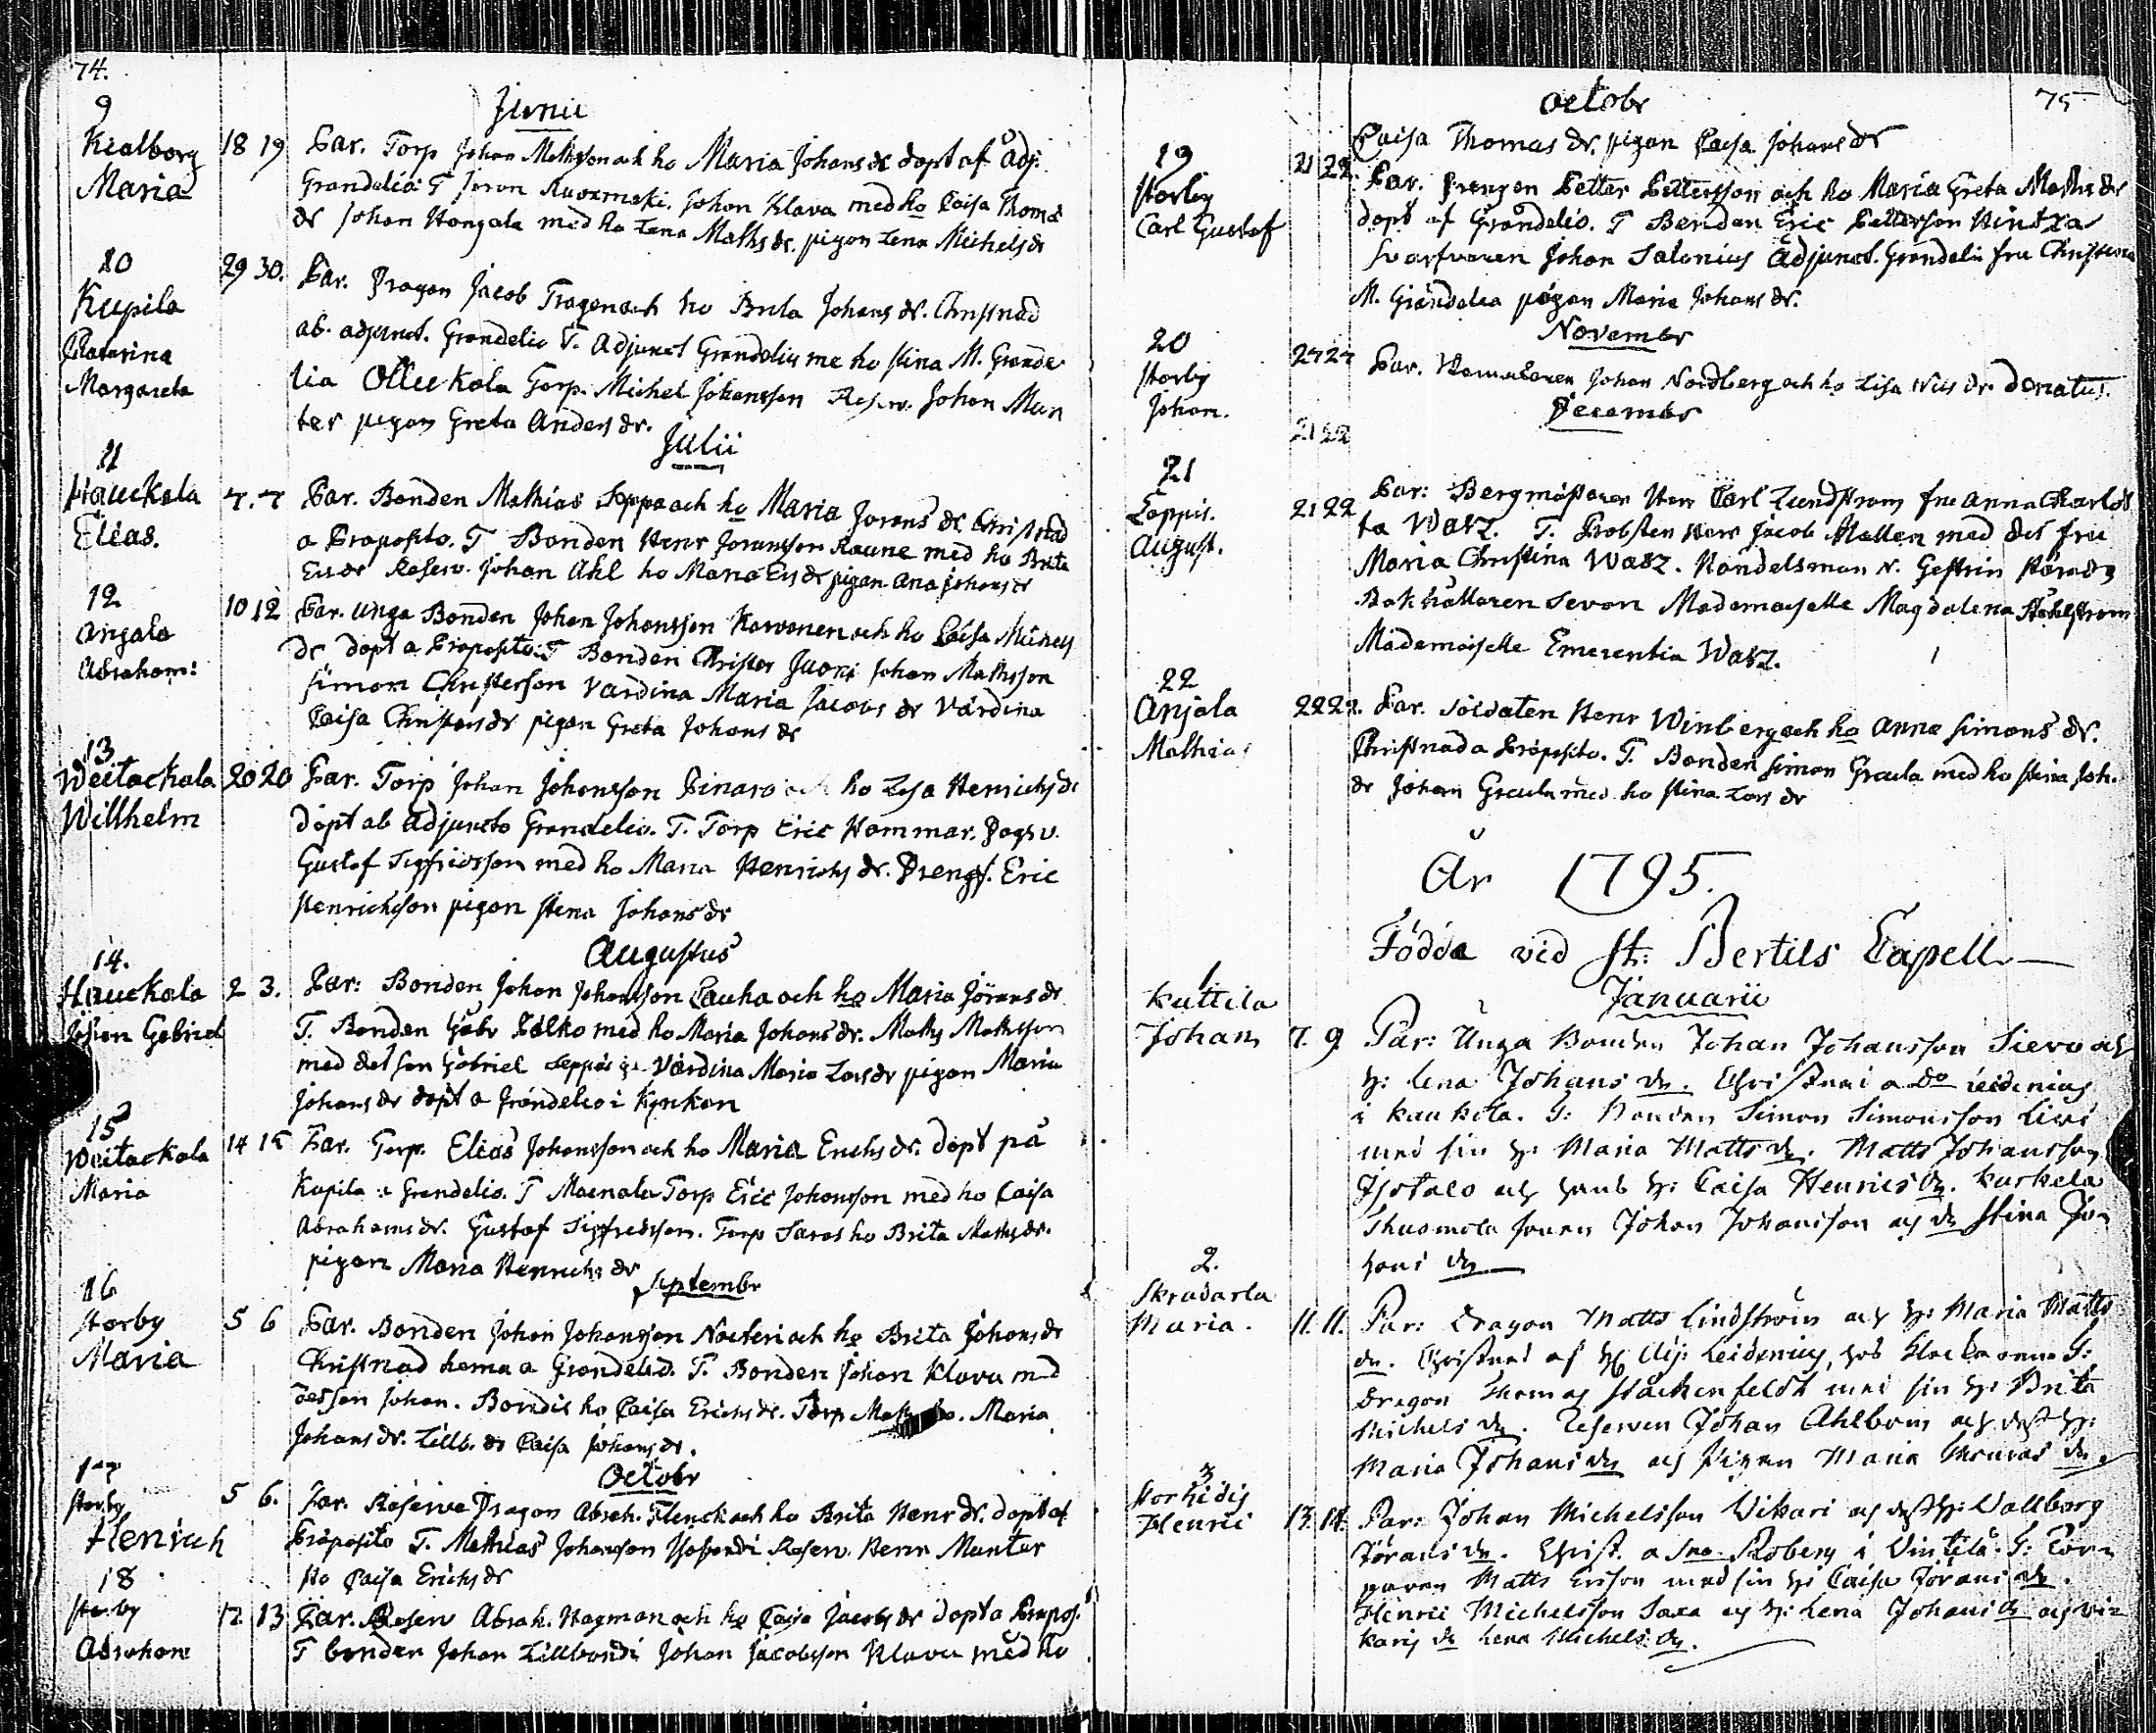 74.
Junii
9
Kialborg
Maria
18 19
Par. Torp Johan Mathsson och ho Maria Johans dr dopt af Adj.
Grandelio. T Joran Johan Klava med ho Caisa Thoms
dr Johan Hongala med ho Lena Maths dr. pigan Lena Michels dr
10
Kupila
Chatarina
Margareta
29 30.
Par. Dragon Jacob Tragen och ho Brita Johans dr. Christnad
ab. adjunct. Grandelio T. Adjunct Grandelius me ho Stina M. Grande
lia Ollus Kala Torp. Michel Johansson Reserv. Johan Mun
ter pigan Greta Anders dr.
Julii
11
Hauckala
Elias.
7. 7
Par. Bonden Mathias Seppa och ho Maria Jorans dr Christnad
a Præposito. T Bonden Henr Joransson Raune med ho Brita
Ers dr Reserv. Johan Ahl ho Maria Ers dr pigan Ana Johans dr
12
Anjala
Abraham:
10 12
Par. Unga Bonden Johan Johansson Karvonen och ho Caisa Michels
dr dopt a Præposito. T Bonden Christer Juori Johan Mathsson
Simon Christersson Värdina Maria Jacobs dr Värdina
Caisa Christers dr pigan Greta Johans dr
13
Weitackala
Willhelm
20 20
Par. Torp Johan Johansson Pinaro och ho Lisa Henrichs dr
dopt ab Adjuncto Grandelio. T. Torp Eric Hammar. Dags v.
Gustaf Sigfridsson med ho Maria Henrichs dr. Drengs. Eric
Henrichsson pigan Stina Johans dr
Augustus
14.
Hauckala
Johan Gabriel
2 3.
Par: Bonden Johan Johansson Cauha och ho Maria Jörans dr
T. Bonden Gabr Pälko med ho Maria Johans dr. Maths Mathsson
med det son Gabriel Seppä Värdina Maria Lars dr pigan Maria
Johans dr dopt a Grandelio i Kyrkan
15
Weitackala
Maria
14 15
Par. Torp. Elias Johansson och ho Maria Erichs dr. dopt på
Kupila a Grandelio. T Maenala Torp Eric Johansson med ho Caisa
Abrahams dr. Gustaf Sigfredsson. Torp Saras ho Brita Maths dr.
pigan Maria Henrichs dr
Septembr
16
Storby
Maria
5 6
Par. Bonden Johan Johansson Nouteri och ho Brita Johans dr
Christnad hema a Grandelio. T. Bonden Johan Klava med
desson Johan. Bondis ho Caisa Erichs dr. Torp Maths ho. Maria
Johans dr. Lillb. dr Caisa Johans dr.
Octobr
17
Storby
Henrich
5 6.
Par. Reserve Dragon Abrah. Flenck och ho Brita Henr dr. dopt af
Præposito T. Mathias Johansson Reserv. Henr Munter
Ho Caisa Erichs dr
18
Storby
Abraham
12 13
Par. Reserv Abrah. Hagman och ho Caisa Jacobs dr dopt a Præpos.
T bonden Johan Lillbondi Johan Jacobsson Klava med ho
75
Octobr
Caisa Thomas dr. pigan Caisa Johans dr
19
Storby
Carl Gustaf
21 22.
Par. Drengen Petter Pettersson och ho Maria Greta Maths dr
dopt af Grandelio. T Bonden Eric Pettersson Hintza
Svarfvaren Johan Salonius Adjunct. Grandelii fru Christina
M. Grandelia pigan Maria Johans dr.
Novembr
20
Storby
Johan.
27 27
Par. Johan Nordberg och ho Lisa Nils dr Donatus.
Decembr
21 22
21
Loppis.
August.
21 22
Par: Bergmästaren Herr Carl Lundstrom fru Anna Charlot
ta Wasz. T. Probsten Herr Jacob Mallen med des fru
Maria Christina Wasz. Handelsman N. Gestrin Härads
Bokhållaren Sevon Mademoiselle Magdalena Stählstrom
Mademoiselle Emerentia Wasz.
22
Anjala
Mathias
22 22.
Par. Soldaten Henr Winberg och ho Anna Simons dr.
Christnad a Præposito. T. Bonden Simon Grcula med ho Stina Joh.
dr Johan Grcula med ho Stina Lars dr
År 1795.
Födde vid St: Bertils Capell.
Januarii
1
Kuttila
Johan
7. 9.
Par: Unga Bonden Johan Johansson Sievo och
h: Lena Johans dr. Christnad a Do Leidenius
i Kaukola. T: Bonden Simon Simonsson Livi
med sin h: Maria Matts dr. Matts Johansson
Isotalo och hans h: Caisa Henrics dr. Kuckela
Thuomola sonen Johan Johansson och dr Stina Jo-
hans dr
2.
Skradarla
Maria.
11. 11.
Par: Dragon Matts Lindström och h: Maria Matts
dr. Christnad af H Adj: Leidenius, hos Klockaren T:
Dragon Thomas Stackenfeldt med sin h: Brita
Michels dr. Reserven Johan Ahlbom och dess h:
Maria Johans dr och Pigan Maria Thomas dr.
3
Storhidis
Henric
13. 14.
Par: Johan Michelsson Vikari och dess h: Wallborg
Jörans dr. Christ. a Sno. Roberg i Vintila. T: Tor-
paren Matts Ersson med sin h: Caisa Jörans dr.
Henric Michelsson Saxa och h: Lena Johans dr och Vi-
karis dr Lena Michels dr.